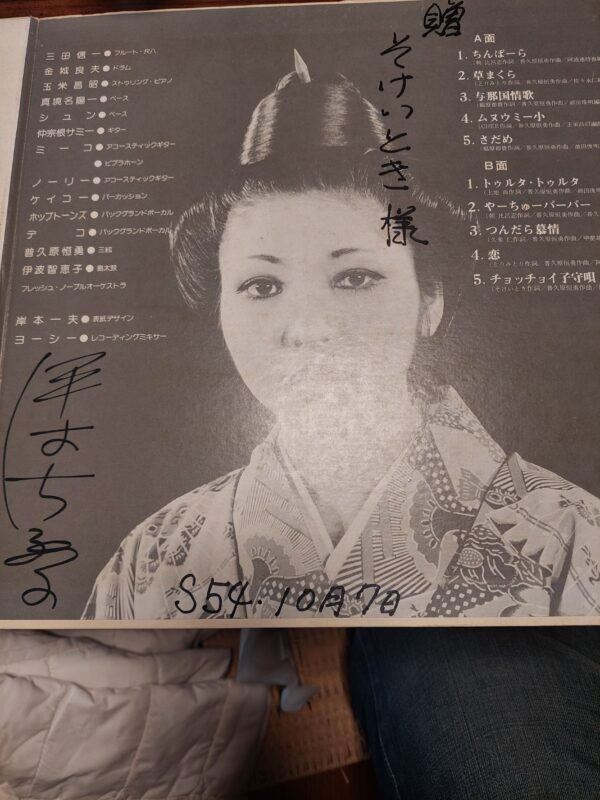 贈
そけいとき様
三田信一●フルート・尺八
金城良夫●ドラム
玉米昌昭●ストゥリング・ピアノ
真境名陽一●ベース
シュン●ベース
仲宗根サミー●ギター
ミーコ●アコースティックギター
●ビブラホーン
ノーリー●アコースティックギター
ケイコー●パーカッション
ホップトーンズ●バックグランドボーカル
デコ●バックグランドボーカル
普久原恒勇●三絃
伊波智恵子●島太鼓
フレッシュ・ノーブルオーケストラ
岸本一夫●表紙デザイン
ヨーシー●レコーディングミキサー
A面
1. ちんぼーら
2. 草まくら
3. 与那国情歌
4. ムヌウミー小
5. さだめ
B面
1. トゥルタ・トゥルタ
2. やーちゅーバーバー
3. つんだら慕情
4. 恋
5. チョッチョイ子守唄
S54.10月7日